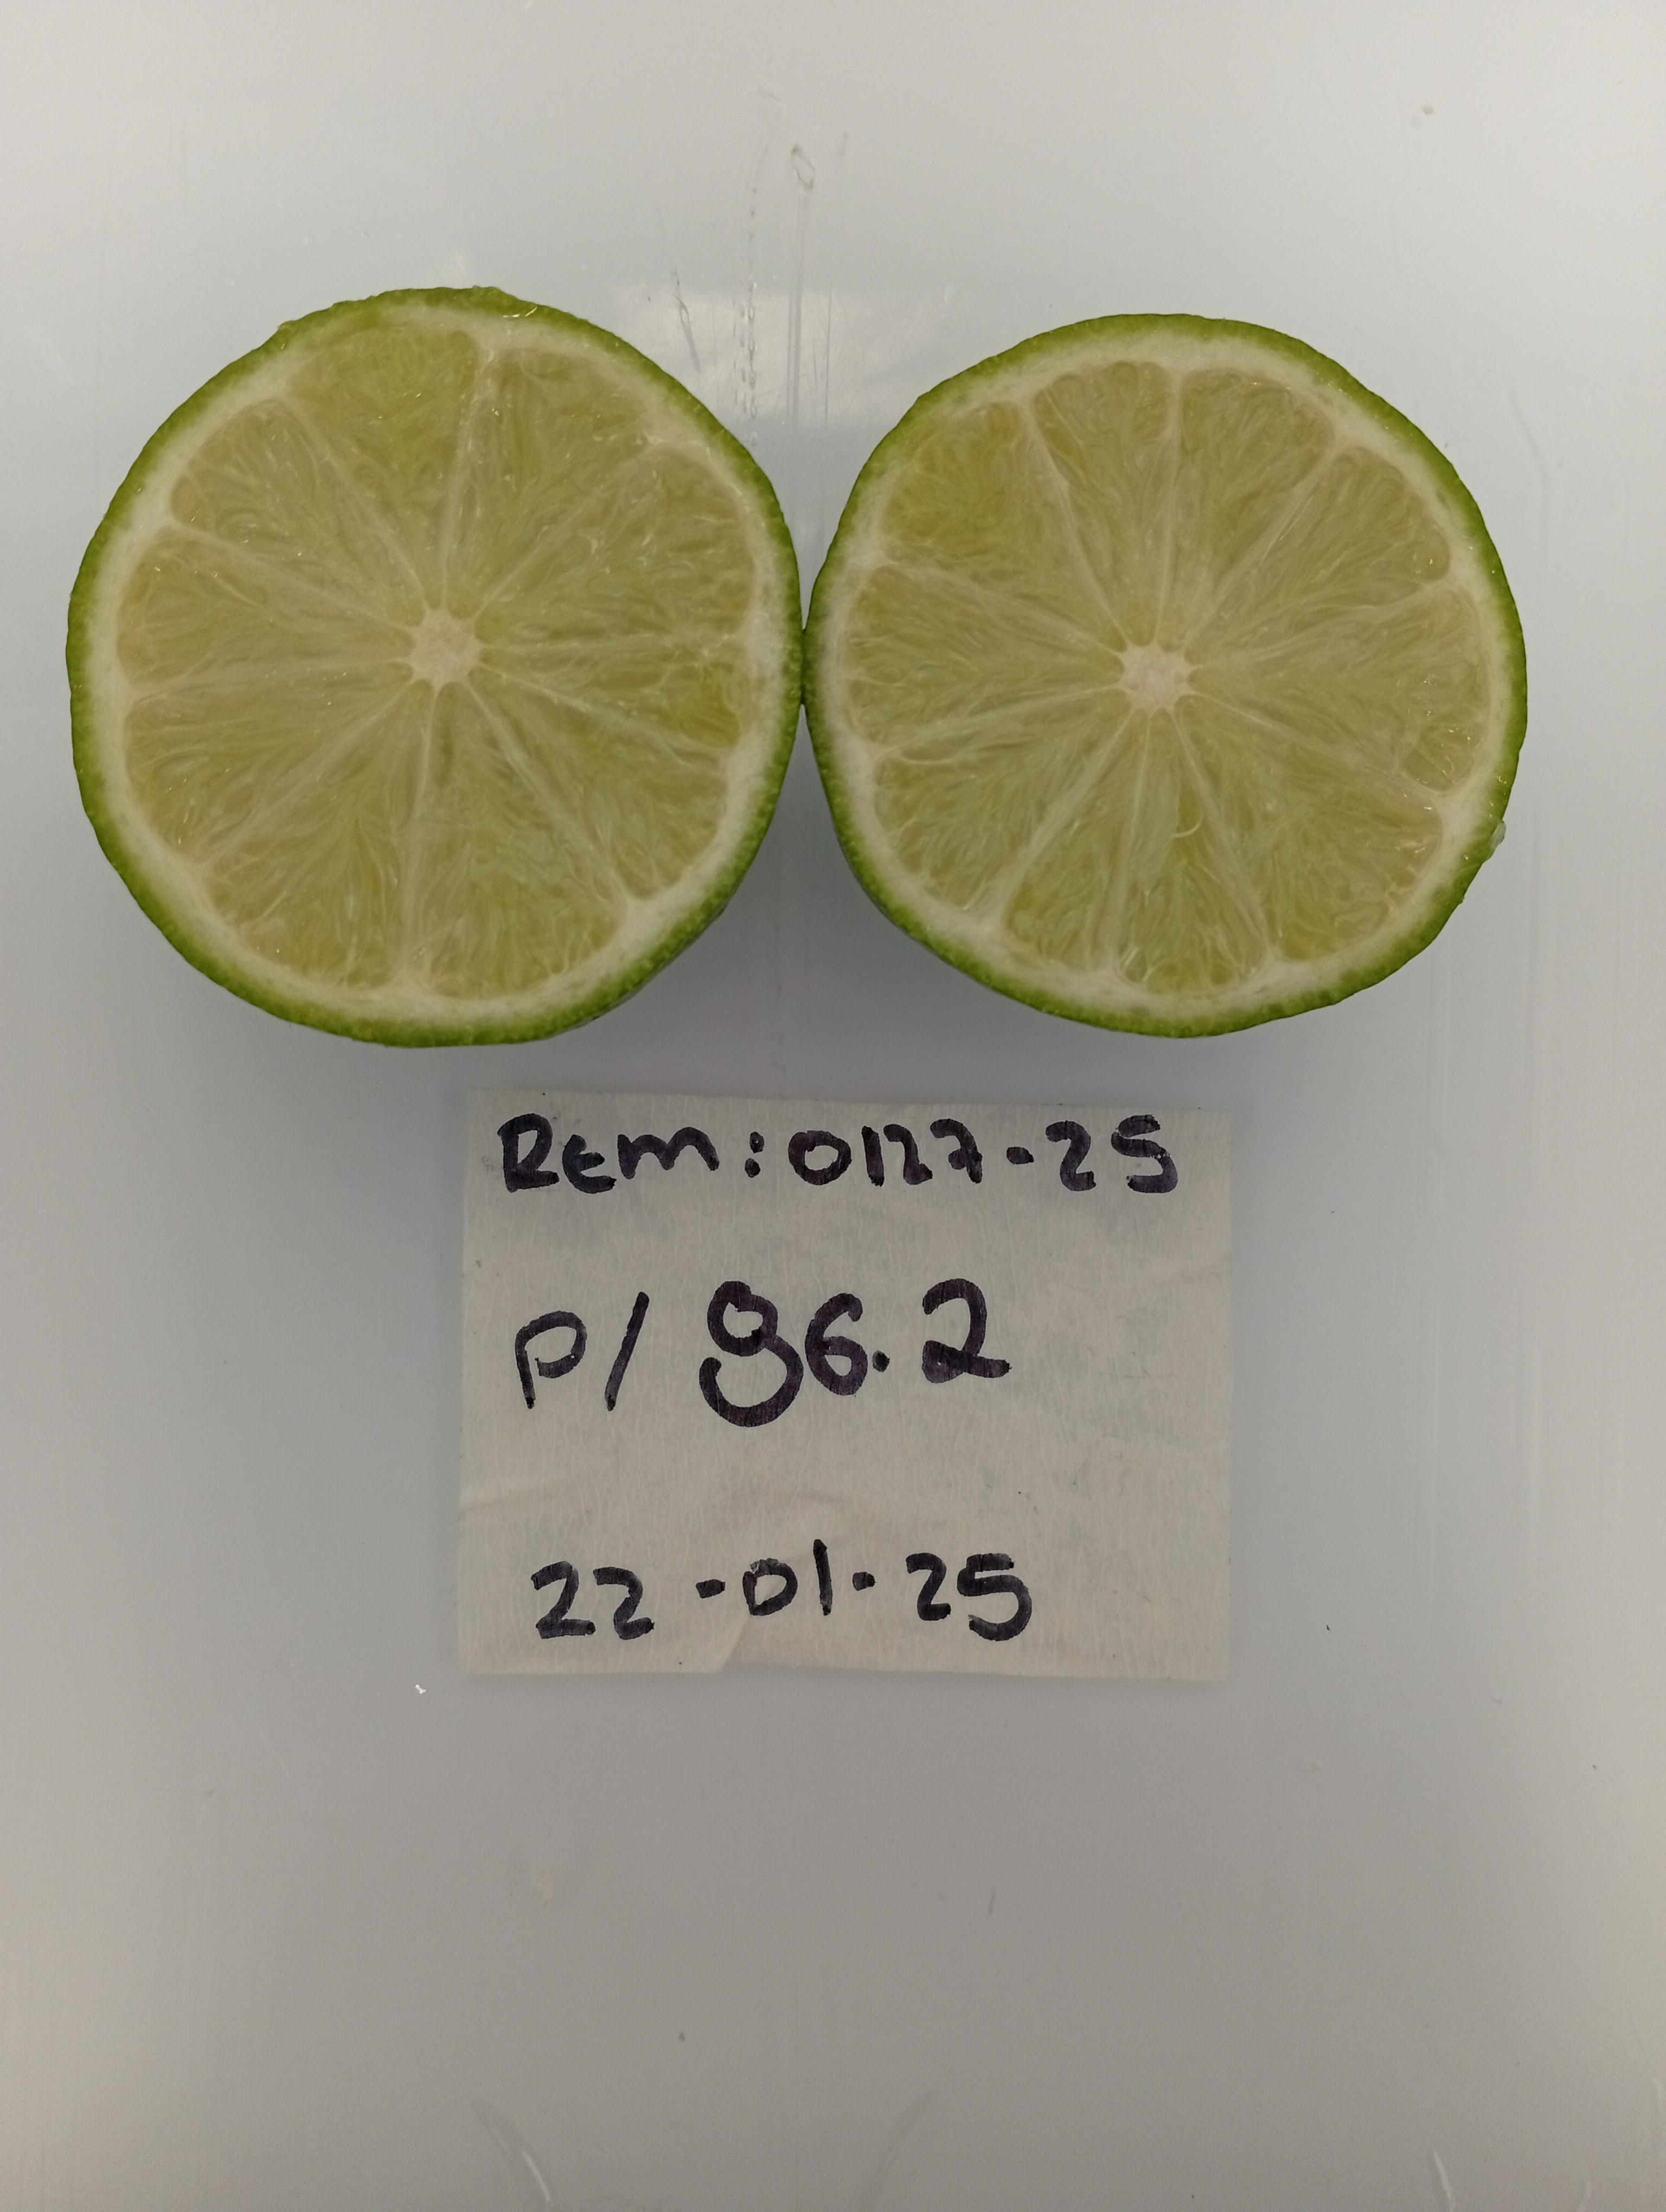 Rem: 0127-25
P/ 96.2
22-01-25